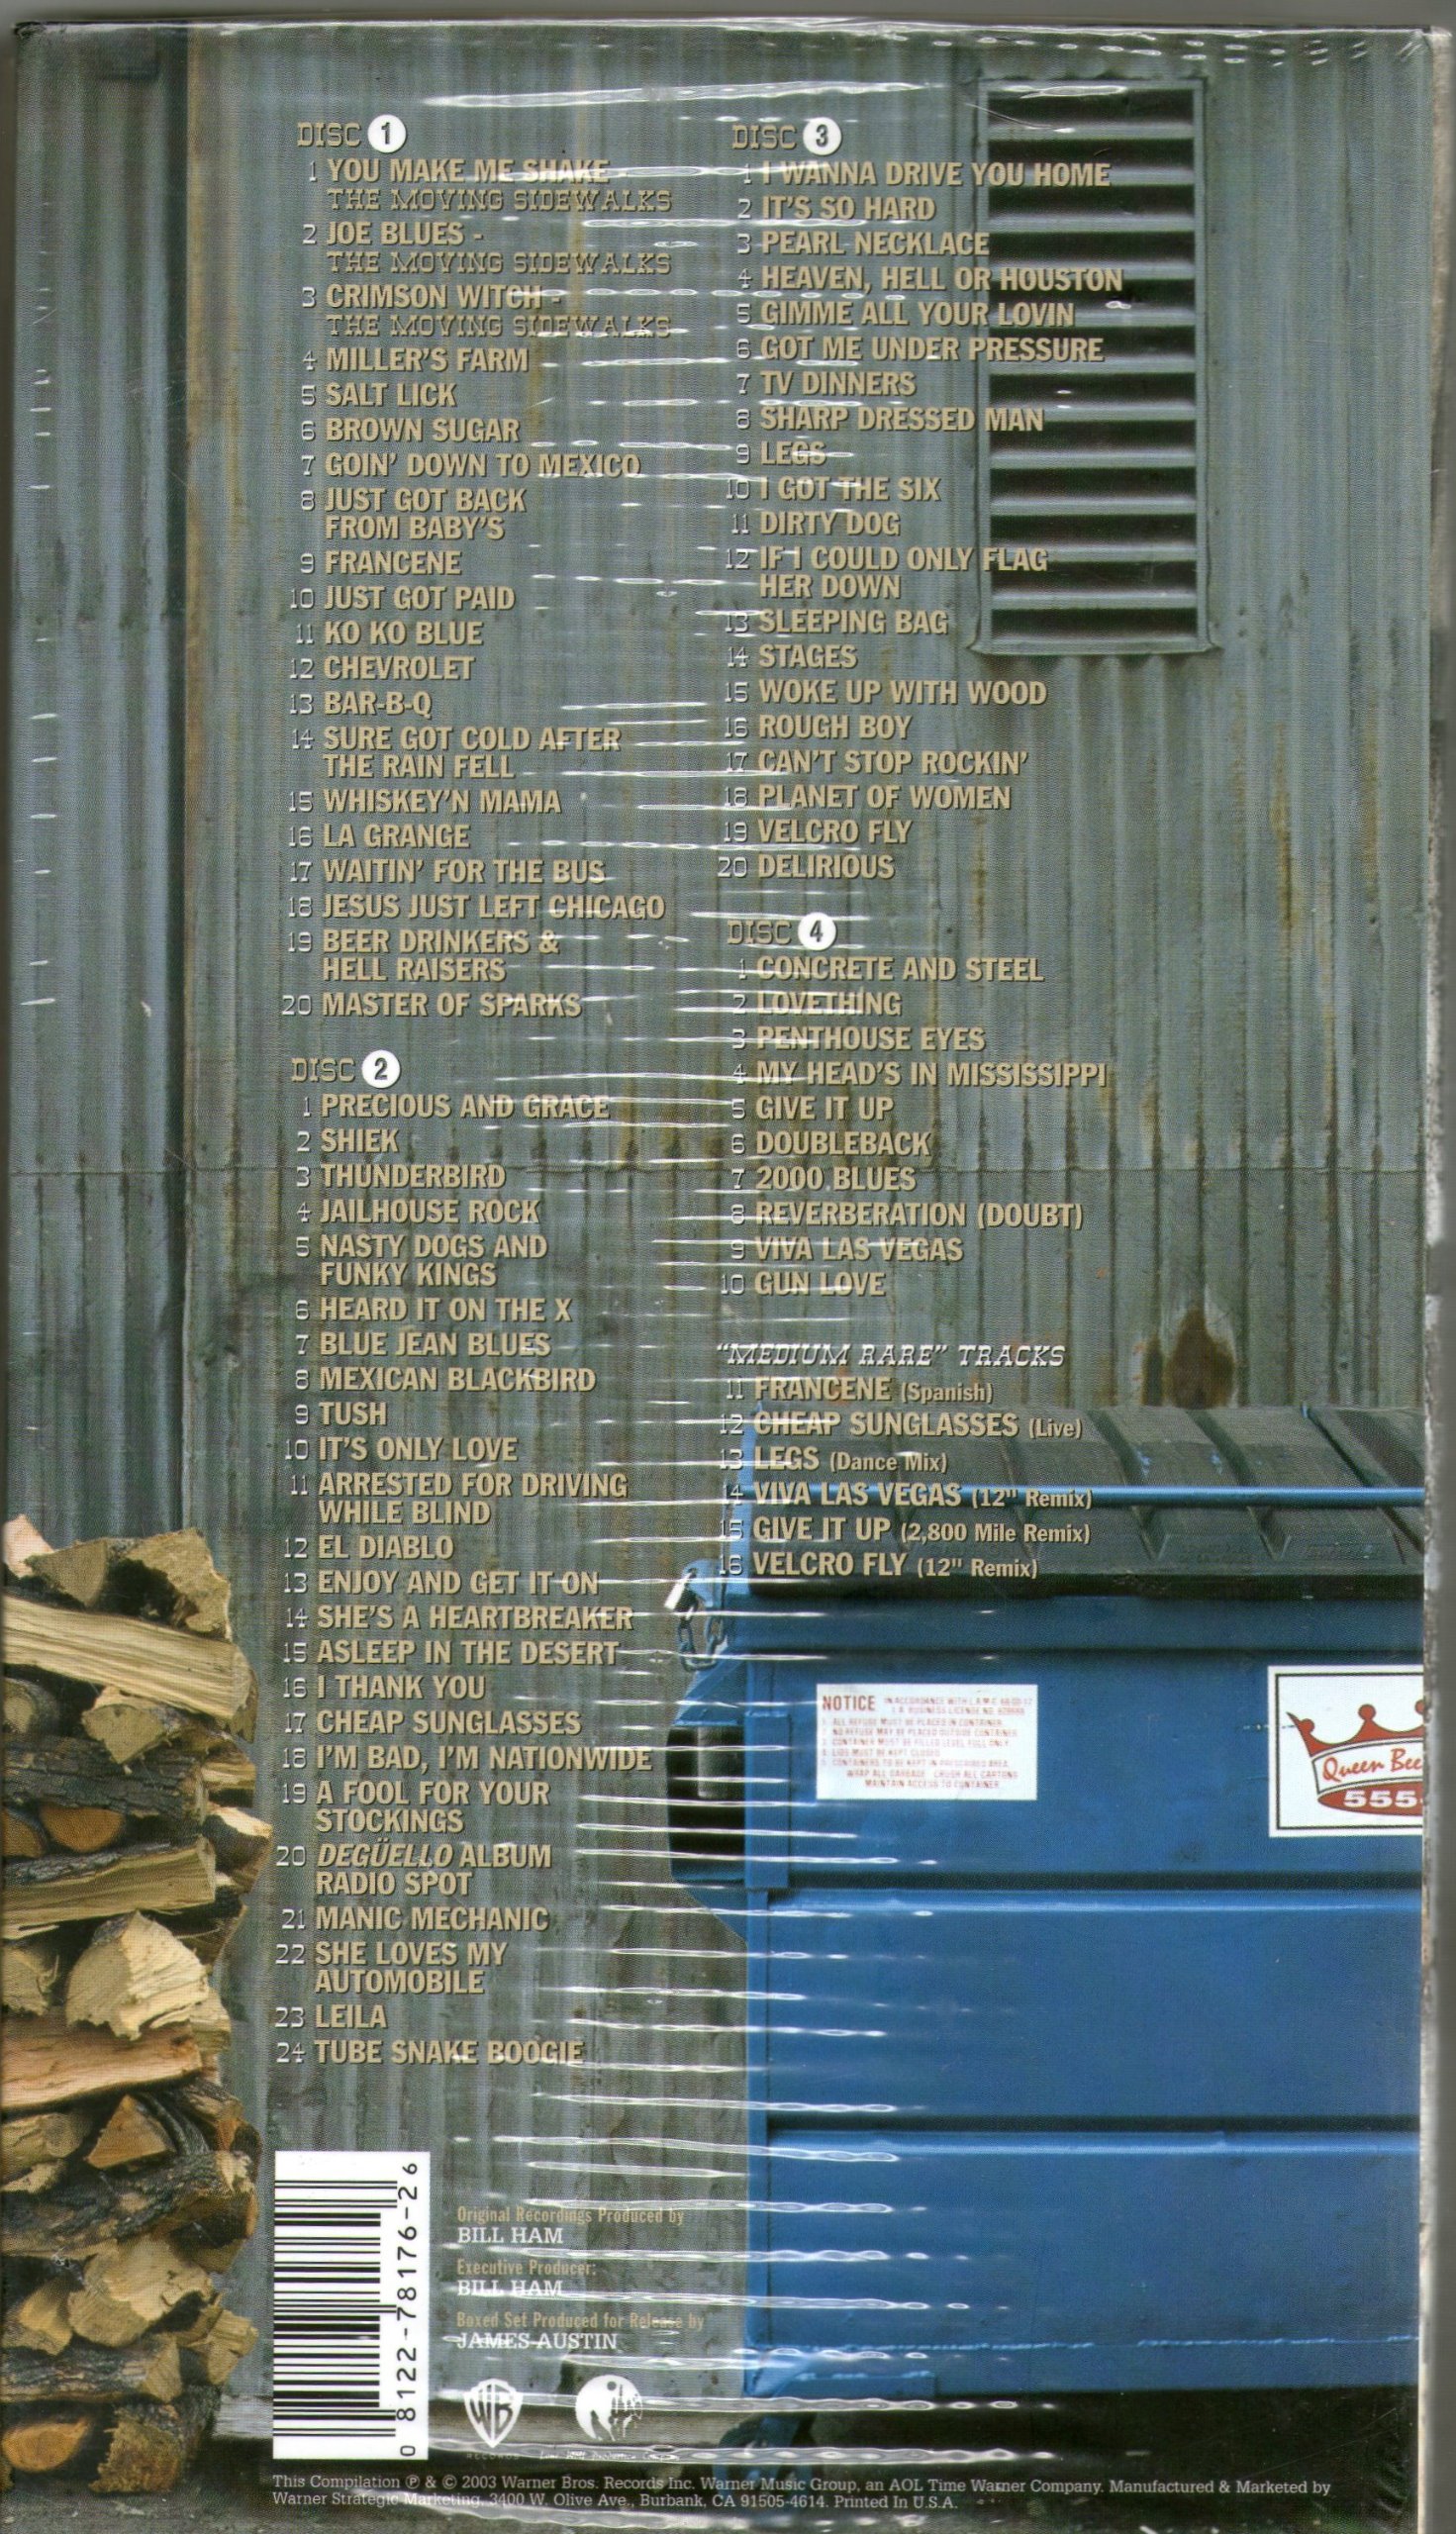 DISC 1
1 YOU MAKE ME SHAKE -
THE MOVING SIDEWALKS
2 JOE BLUES -
THE MOVING SIDEWALKS
3 CRIMSON WITCH -
THE MOVING SIDEWALKS
4 MILLER'S FARM
5 SALT LICK
6 BROWN SUGAR
7 GOIN' DOWN TO MEXICO
8 JUST GOT BACK
FROM BABY'S
9 FRANCENE
10 JUST GOT PAID
11 KO KO BLUE
12 CHEVROLET
13 BAR-B-Q
14 SURE GOT COLD AFTER
THE RAIN FELL
15 WHISKEY'N MAMA
16 LA GRANGE
17 WAITIN' FOR THE BUS
18 JESUS JUST LEFT CHICAGO
19 BEER DRINKERS &
HELL RAISERS
20 MASTER OF SPARKS
DISC 2
1 PRECIOUS AND GRACE
2 SHIEK
3 THUNDERBIRD
4 JAILHOUSE ROCK
5 NASTY DOGS AND
FUNKY KINGS
6 HEARD IT ON THE X
7 BLUE JEAN BLUES
8 MEXICAN BLACKBIRD
9 TUSH
10 IT'S ONLY LOVE
11 ARRESTED FOR DRIVING
WHILE BLIND
12 EL DIABLO
13 ENJOY AND GET IT ON
14 SHE'S A HEARTBREAKER
15 ASLEEP IN THE DESERT
16 I THANK YOU
17 CHEAP SUNGLASSES
18 I'M BAD, I'M NATIONWIDE
19 A FOOL FOR YOUR
STOCKINGS
20 DEGÜELLO ALBUM
RADIO SPOT
21 MANIC MECHANIC
22 SHE LOVES MY
AUTOMOBILE
23 LEILA
24 TUBE SNAKE BOOGIE
DISC 3
1 I WANNA DRIVE YOU HOME
2 IT'S SO HARD
3 PEARL NECKLACE
4 HEAVEN, HELL OR HOUSTON
5 GIMME ALL YOUR LOVIN
6 GOT ME UNDER PRESSURE
7 TV DINNERS
8 SHARP DRESSED MAN
9 LEGS
10 I GOT THE SIX
11 DIRTY DOG
12 IF I COULD ONLY FLAG
HER DOWN
13 SLEEPING BAG
14 STAGES
15 WOKE UP WITH WOOD
16 ROUGH BOY
17 CAN'T STOP ROCKIN'
18 PLANET OF WOMEN
19 VELCRO FLY
20 DELIRIOUS
DISC 4
1 CONCRETE AND STEEL
2 LOVETHING
3 PENTHOUSE EYES
4 MY HEAD'S IN MISSISSIPPI
5 GIVE IT UP
6 DOUBLEBACK
7 2000 BLUES
8 REVERBERATION (DOUBT)
9 VIVA LAS VEGAS
10 GUN LOVE
"MEDIUM RARE" TRACKS
11 FRANCENE (Spanish)
12 CHEAP SUNGLASSES (Live)
13 LEGS (Dance Mix)
14 VIVA LAS VEGAS (12" Remix)
15 GIVE IT UP (2,800 Mile Remix)
16 VELCRO FLY (12" Remix)
NOTICE
ALL REFUSE MUST BE PLACED IN CONTAINER
NO REFUSE MAY BE PLACED OUTSIDE CONTAINER
CONTAINER MUST BE FILLED LEVEL FULL ONLY
LIDS MUST BE KEPT CLOSED
WRAP ALL GARBAGE CRUSH ALL CARTONS
MAINTAIN ACCESS TO CONTAINER
Queen Bee
555-
0 8122-78176-2 6
Original Recordings Produced by
BILL HAM
Executive Producer:
BILL HAM
Boxed Set Produced for Release by
JAMES AUSTIN
WB
RECORDS
This Compilation ℗ & © 2003 Warner Bros. Records Inc. Warner Music Group, an AOL Time Warner Company. Manufactured & Marketed by
Warner Strategic Marketing, 3400 W. Olive Ave., Burbank, CA 91505-4614. Printed In U.S.A.